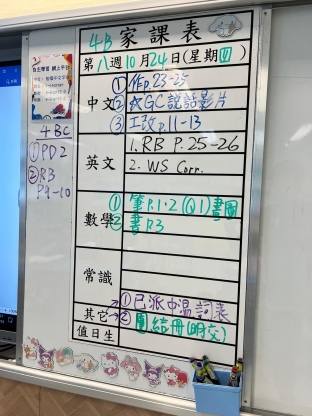 4B 家課表
第八週10月24日(星期四)
中文
① 作p.23-25
② 改GC說話影片
③ 工改p.11-13
英文
1. RB P.25-26
2. WS Corr.
數學
① 筆P.1-2 (Q1)畫圖
② 書P.3
常識
其它
① 已派中溫詞表
② 團結冊(明交)
值日生
4BC
① PD2
② RB
P9-10